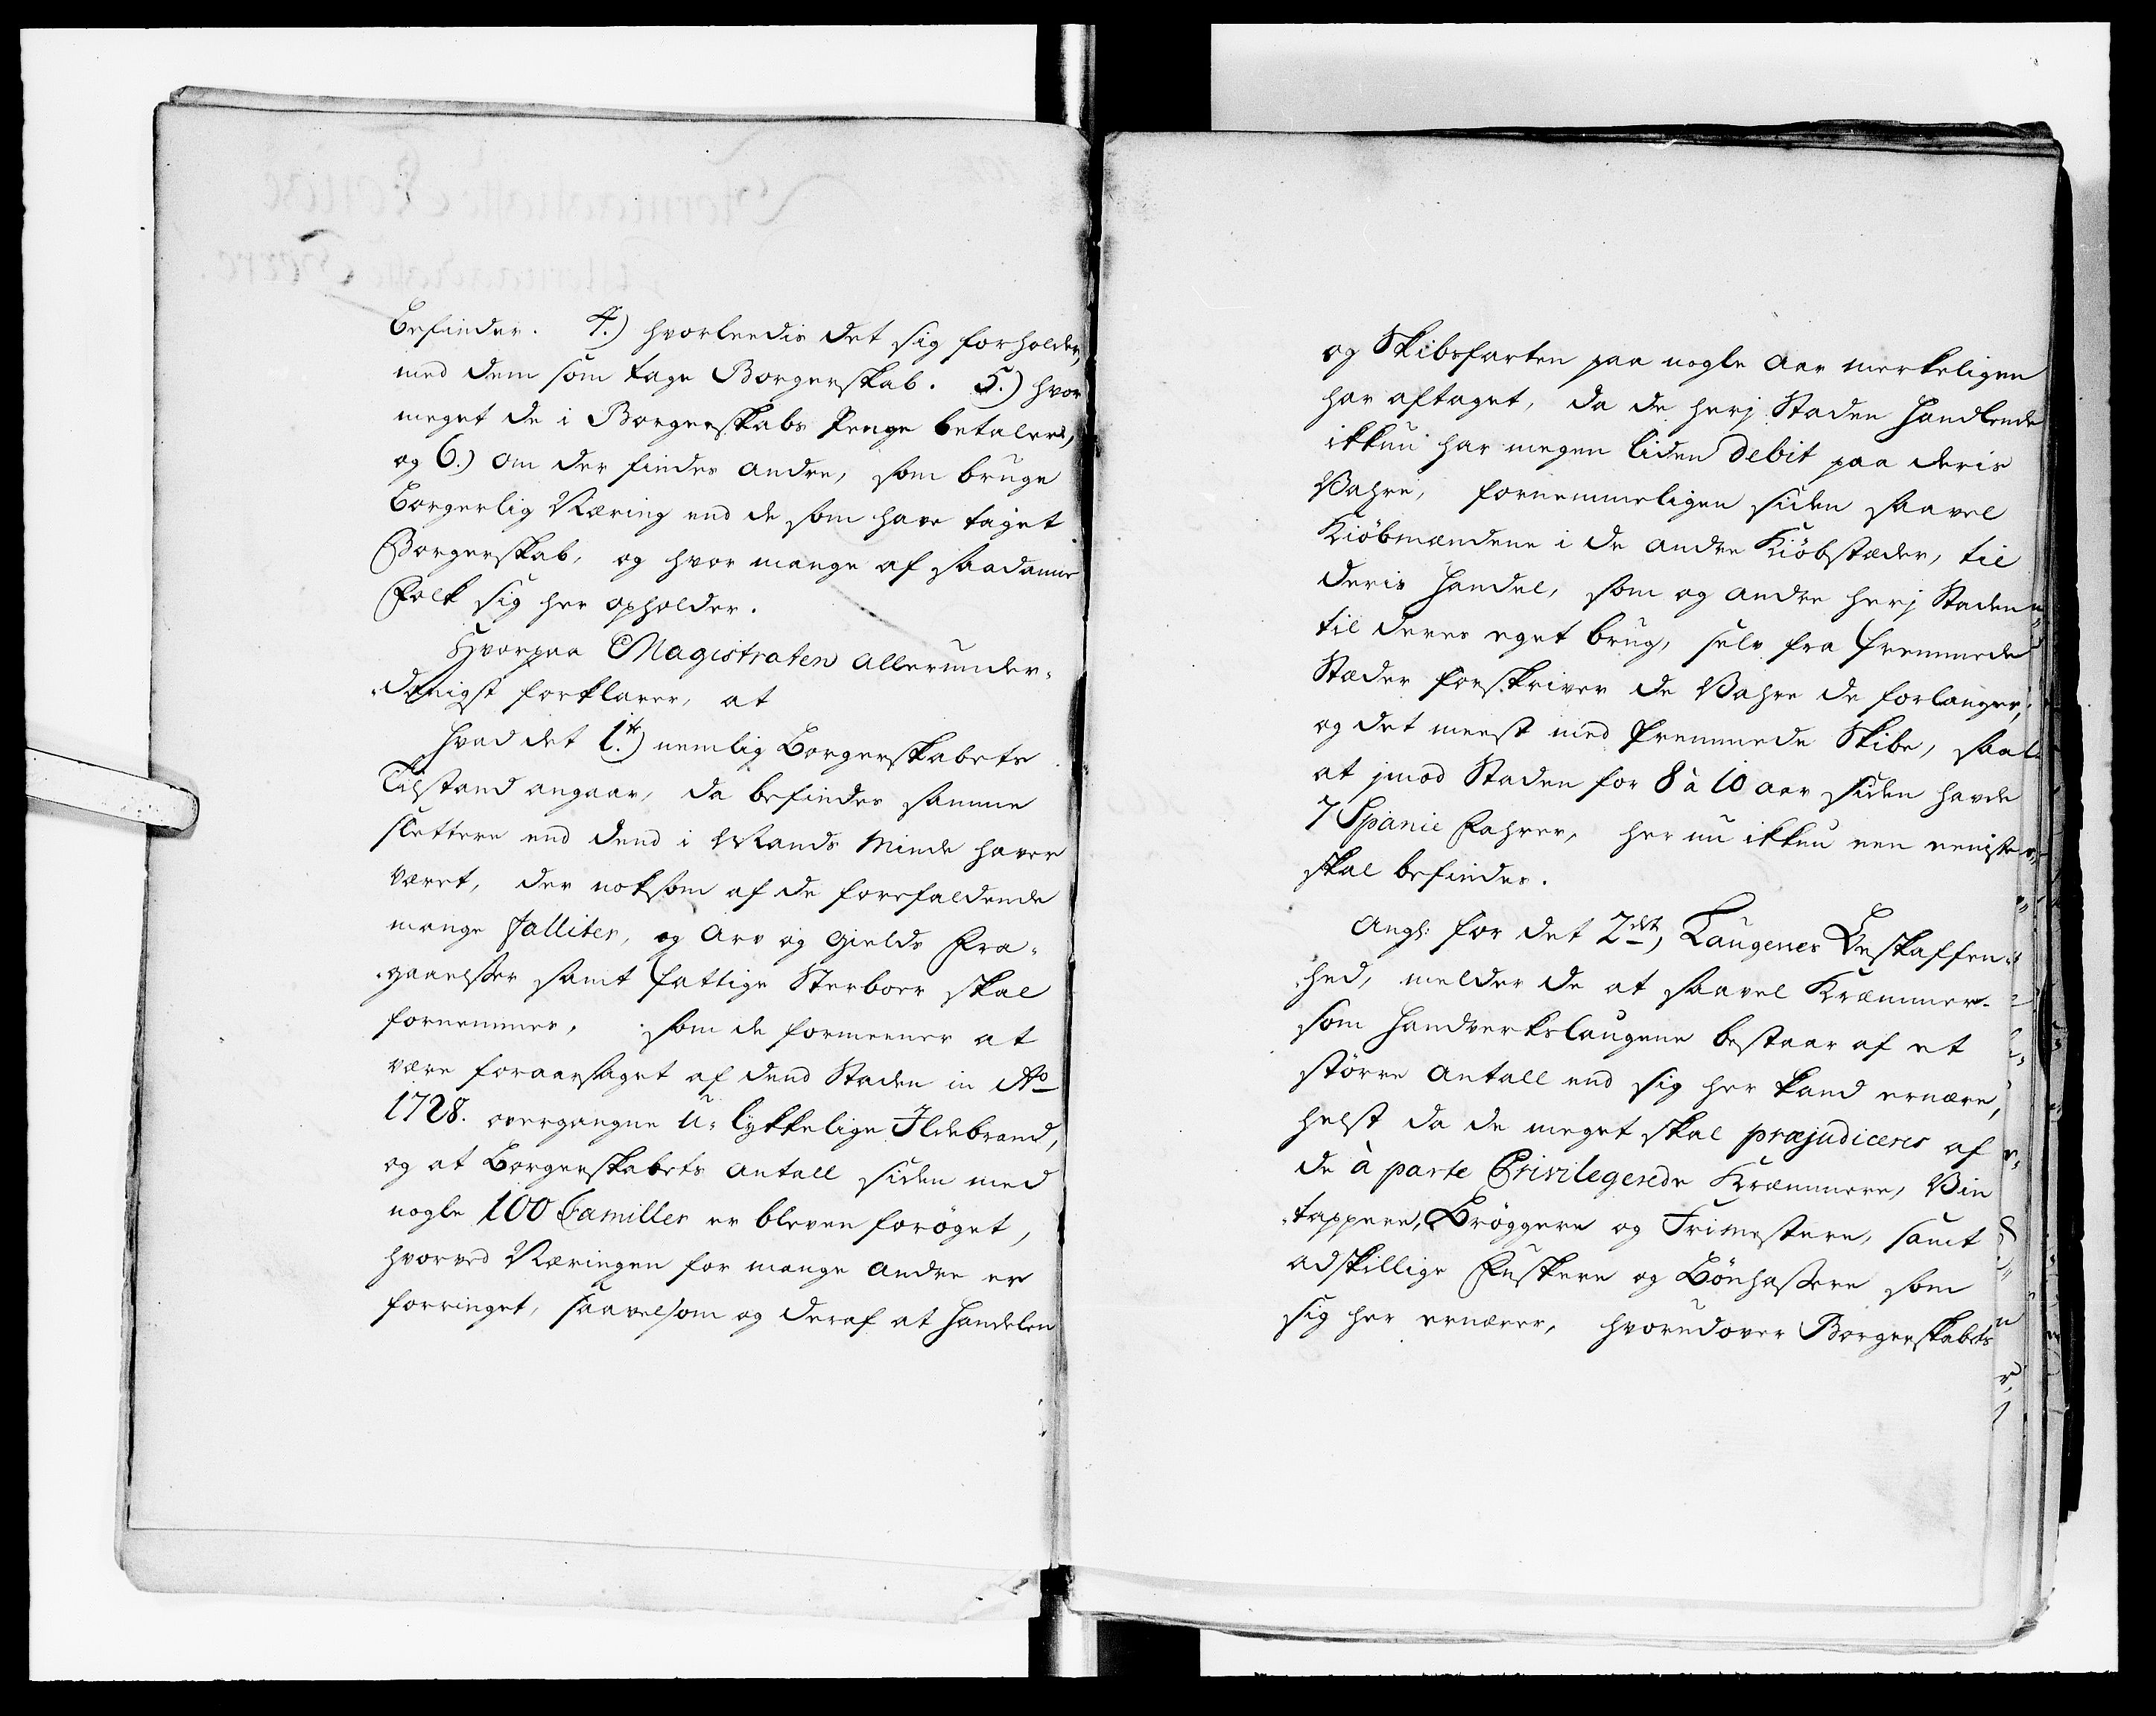 befinder. 4.) hvorleedis det sig forholder,
med dem som tage Borgerskab. 5.) hvor
meget de i Borgerskabs Penge betaler,
og 6.) om der findes andre, som bruge
borgerlig Næring end de som have taget
Borgerskab, og hvor mange af saadanne
Folk sig her opholder.
Hvorpaa Magistraten allerunder-
-danigst forklarer, at
hvad det 1.te) nemlig Borgerskabets
Tilstand angaar, da befindes samme
slettere end dend i Mands Minde haver
været, der noksom af de forefaldende
mange falliter, og Arv og Gields Fra-
-gaaelsser samt fattige Sterboer skal
fornemmes, som de formeener at
være foraarsaget af dend Staden in Ao
1728. overgangne U-lykkelige Ildebrand,
og at Borgerskabets Antall siden med
nogle 100 Familler er bleven forøget,
hvorved Næringen for mange andre er
forringet, saavelsom og deraf at Handelen
og Skibsfarten paa nogle Aar merkeligen
har aftaget, da de herj Staden Handlende
ikkun har megen liden Debit paa deris
Vahre, fornemmeligen siden saavel
Kiøbmændene i de andre Kiøbstæder, til
deris Handel, som og andre herj Staden
til deres eget brug, selv fra fremmede
Stæder forskriver de Vahre de forlanger,
og det meest med fremmede Skibe, saa
at jmod Staden for 8 à 10 Aar siden havde
7 Spanie Fahrer, her nu ikkun een eeniste
skal befindes.
Angl: for det 2det, Laugenes Beskaffen-
-hed, melder de at saavel Kræmmer-
som Handverkslaugene bestaar af et
større Antall end sig her kand ernære,
helst da de meget skal præjudiceres af
de à parte Privilegerede Kræmmere, Viin
-tappere, Brøggere og Frimestere, samt
adskillige Fuskere og Bønhassere som
sig her ernærer, hvorudover Borgerskabets